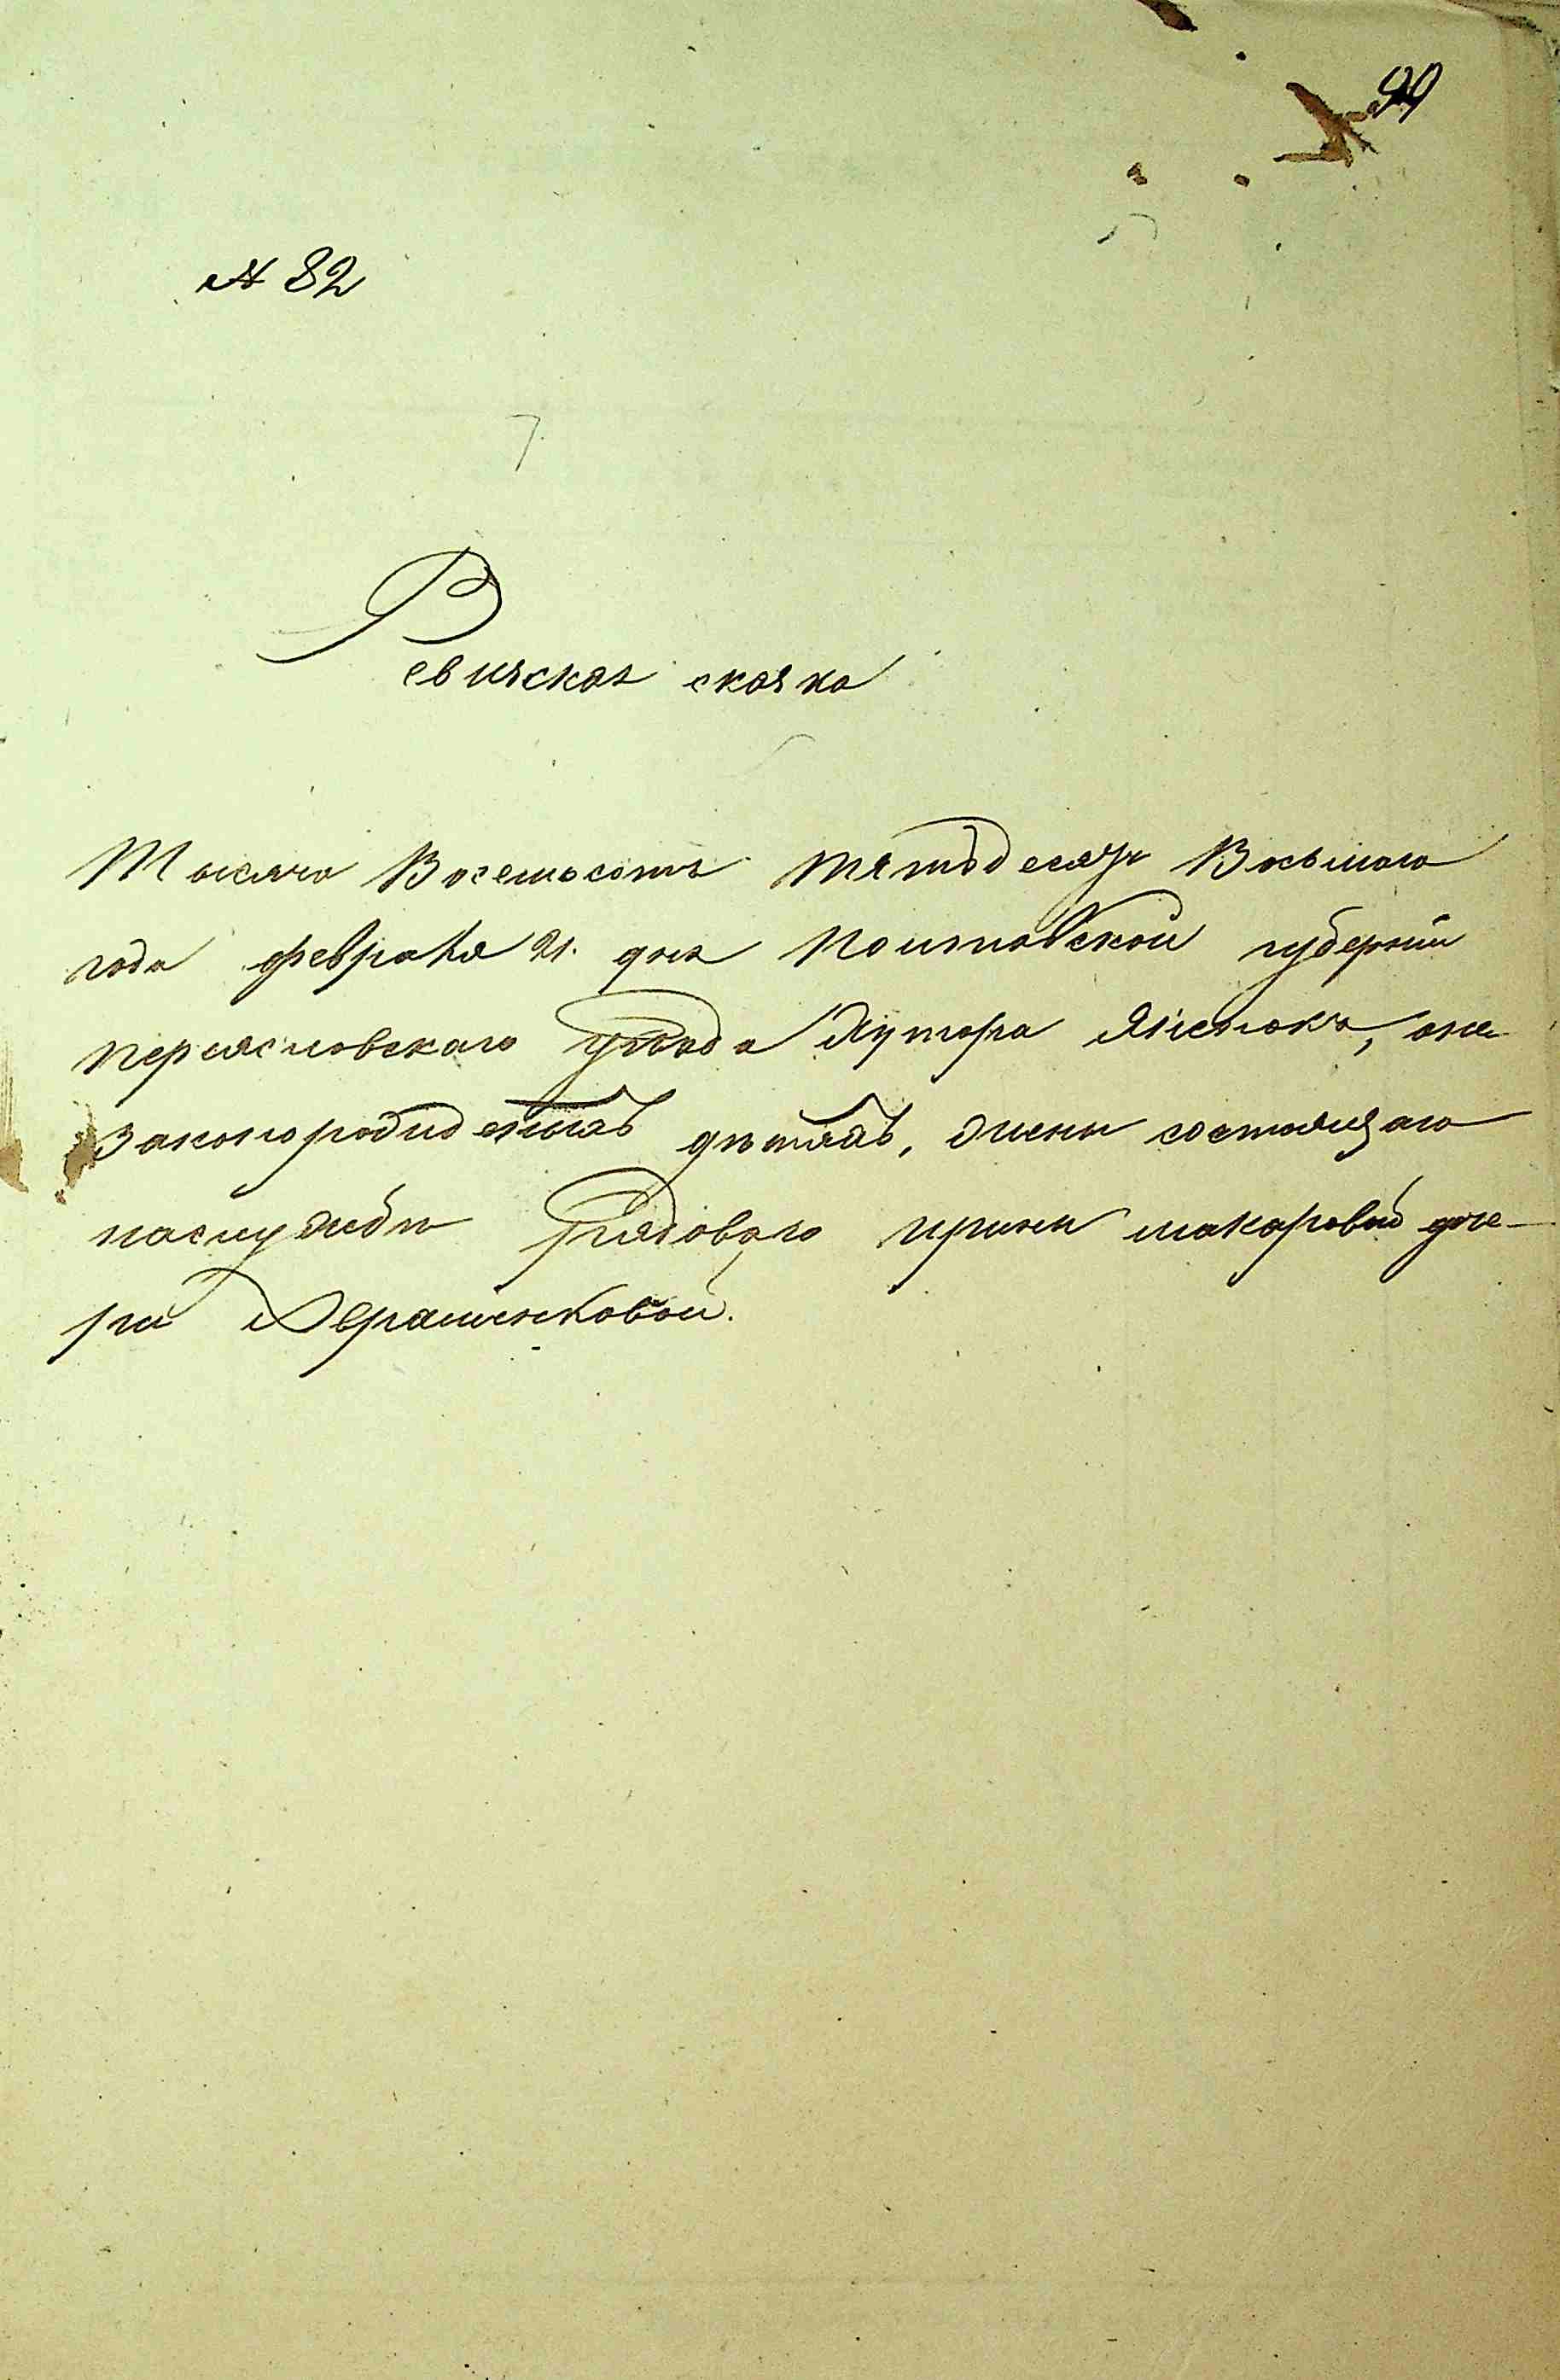 99
№ 82
Ревизская сказка
Тысяча Восемьсотъ пятьдесятъ Восьмаго
года февраля 21. дня Полтавской губерніи
переясловскаго уѣзда Хутора о не
законорожденныхъ дѣтяхъ, жены состоящаго
наслужбѣ рядоваго ирины макаровой доче-
ри Авраменковой.